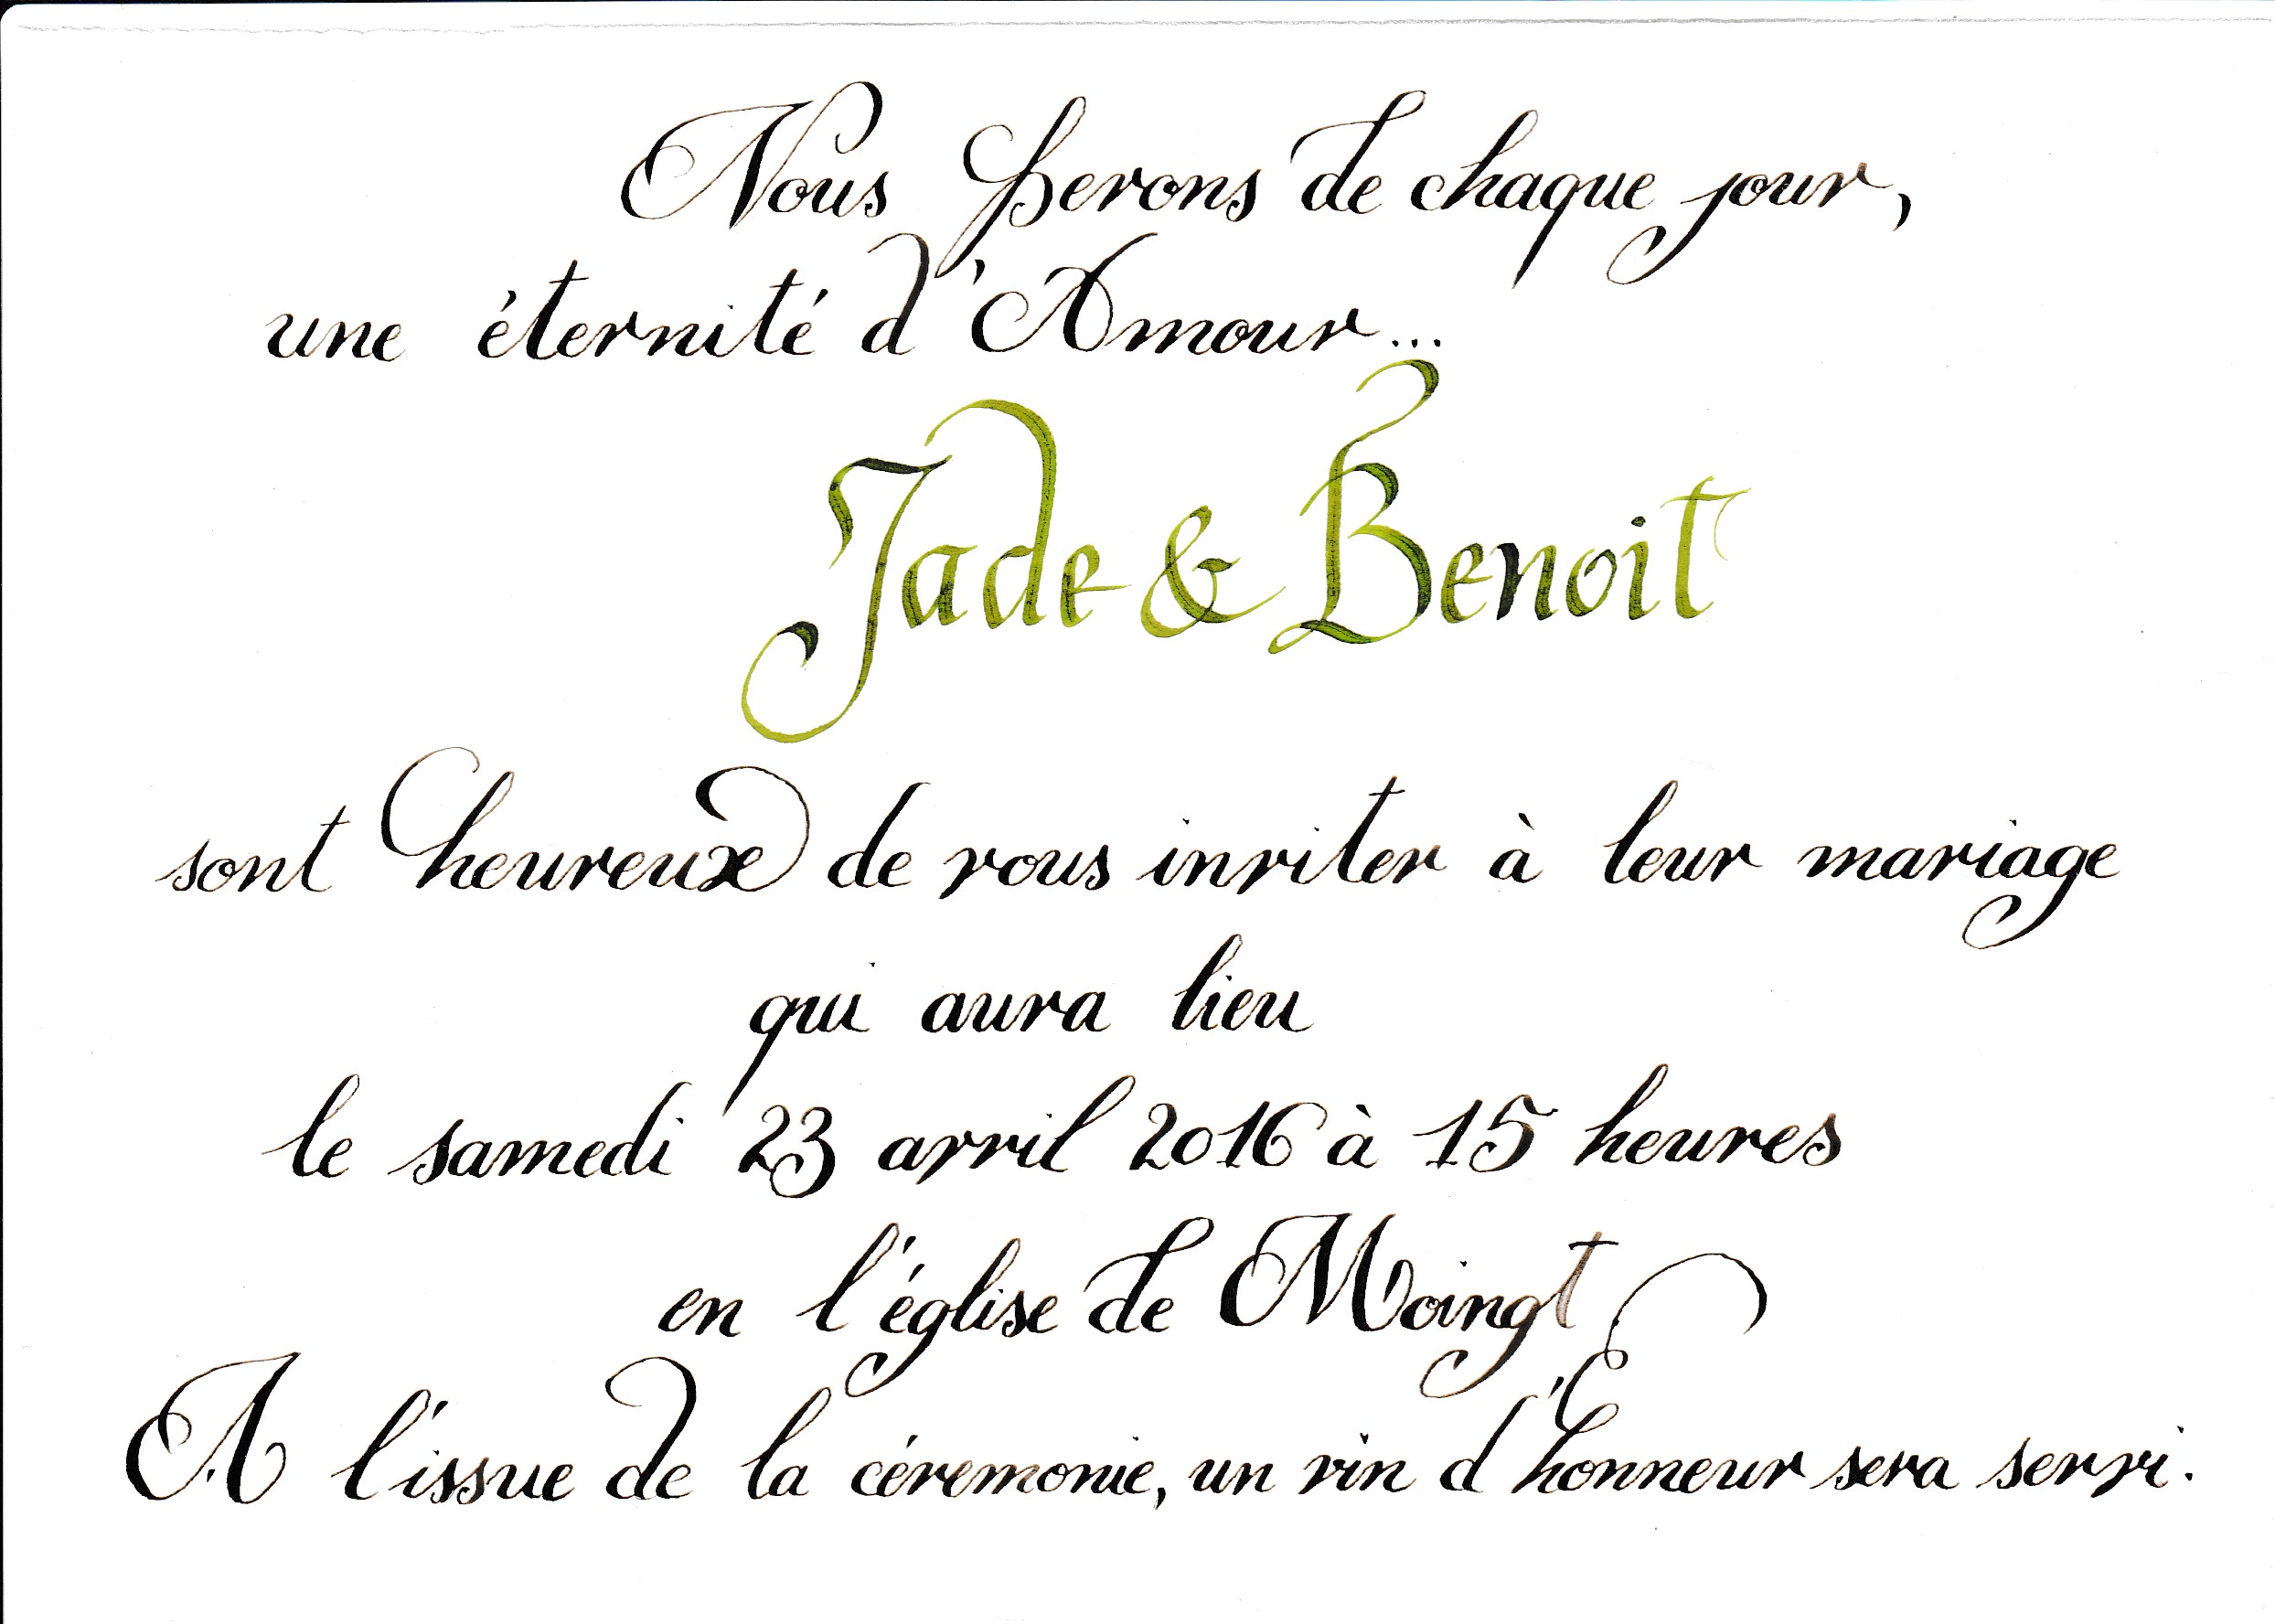 Nous ferons de chaque jour,
une éternité d'Amour...
Jade & Benoit
sont heureux de vous inviter à leur mariage
qui aura lieu
le samedi 23 avril 2016 à 15 heures
en l'église de Moingt
A l'issue de la cérémonie, un vin d'honneur sera servi.